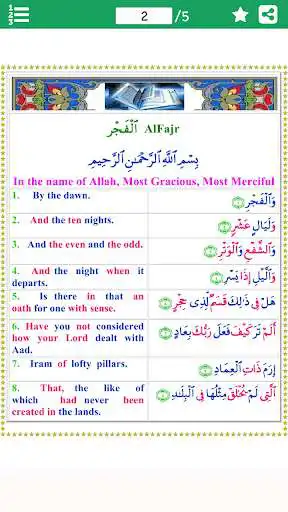 1
2
3
2 /5
ٱلْفَجْر AlFajr
بِسْمِ ٱللَّهِ ٱلرَّحْمَٰنِ ٱلرَّحِيمِ
In the name of Allah, Most Gracious, Most Merciful
1. By the dawn.
وَٱلْفَجْرِ ۝١
2. And the ten nights.
وَلَيَالٍ عَشْرٍ ۝٢
3. And the even and the odd.
وَٱلشَّفْعِ وَٱلْوَتْرِ ۝٣
4. And the night when it
departs.
وَٱلَّيْلِ إِذَا يَسْرِ ۝٤
5. Is there in that an
oath for one with sense.
هَلْ فِى ذَٰلِكَ قَسَمٌ لِّذِى حِجْرٍ ۝٥
6. Have you not considered
how your Lord dealt with
Aad.
أَلَمْ تَرَ كَيْفَ فَعَلَ رَبُّكَ بِعَادٍ ۝٦
7. Iram of lofty pillars.
إِرَمَ ذَاتِ ٱلْعِمَادِ ۝٧
8. That, the like of
which had never been
created in the lands.
ٱلَّتِى لَمْ يُخْلَقْ مِثْلُهَا فِى ٱلْبِلَٰدِ ۝٨